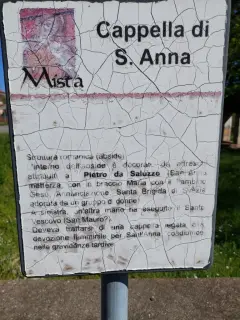 Cappella di
S. Anna
Mista
Struttura romanica (abside)
L'interno dell'abside è decorato da affreschi
attribuiti a Pietro da Saluzzo
con in braccio Maria con il bambino
Gesù, Annunciazione, Santa Brigida di
adorata da un gruppo di donne
A sinistra, un'altra mano ha eseguito il Santo
vescovo (San Mauro?)
Doveva trattarsi di una cappella legata alla
devozione femminile per Sant'Anna
nelle gravidanze tardive